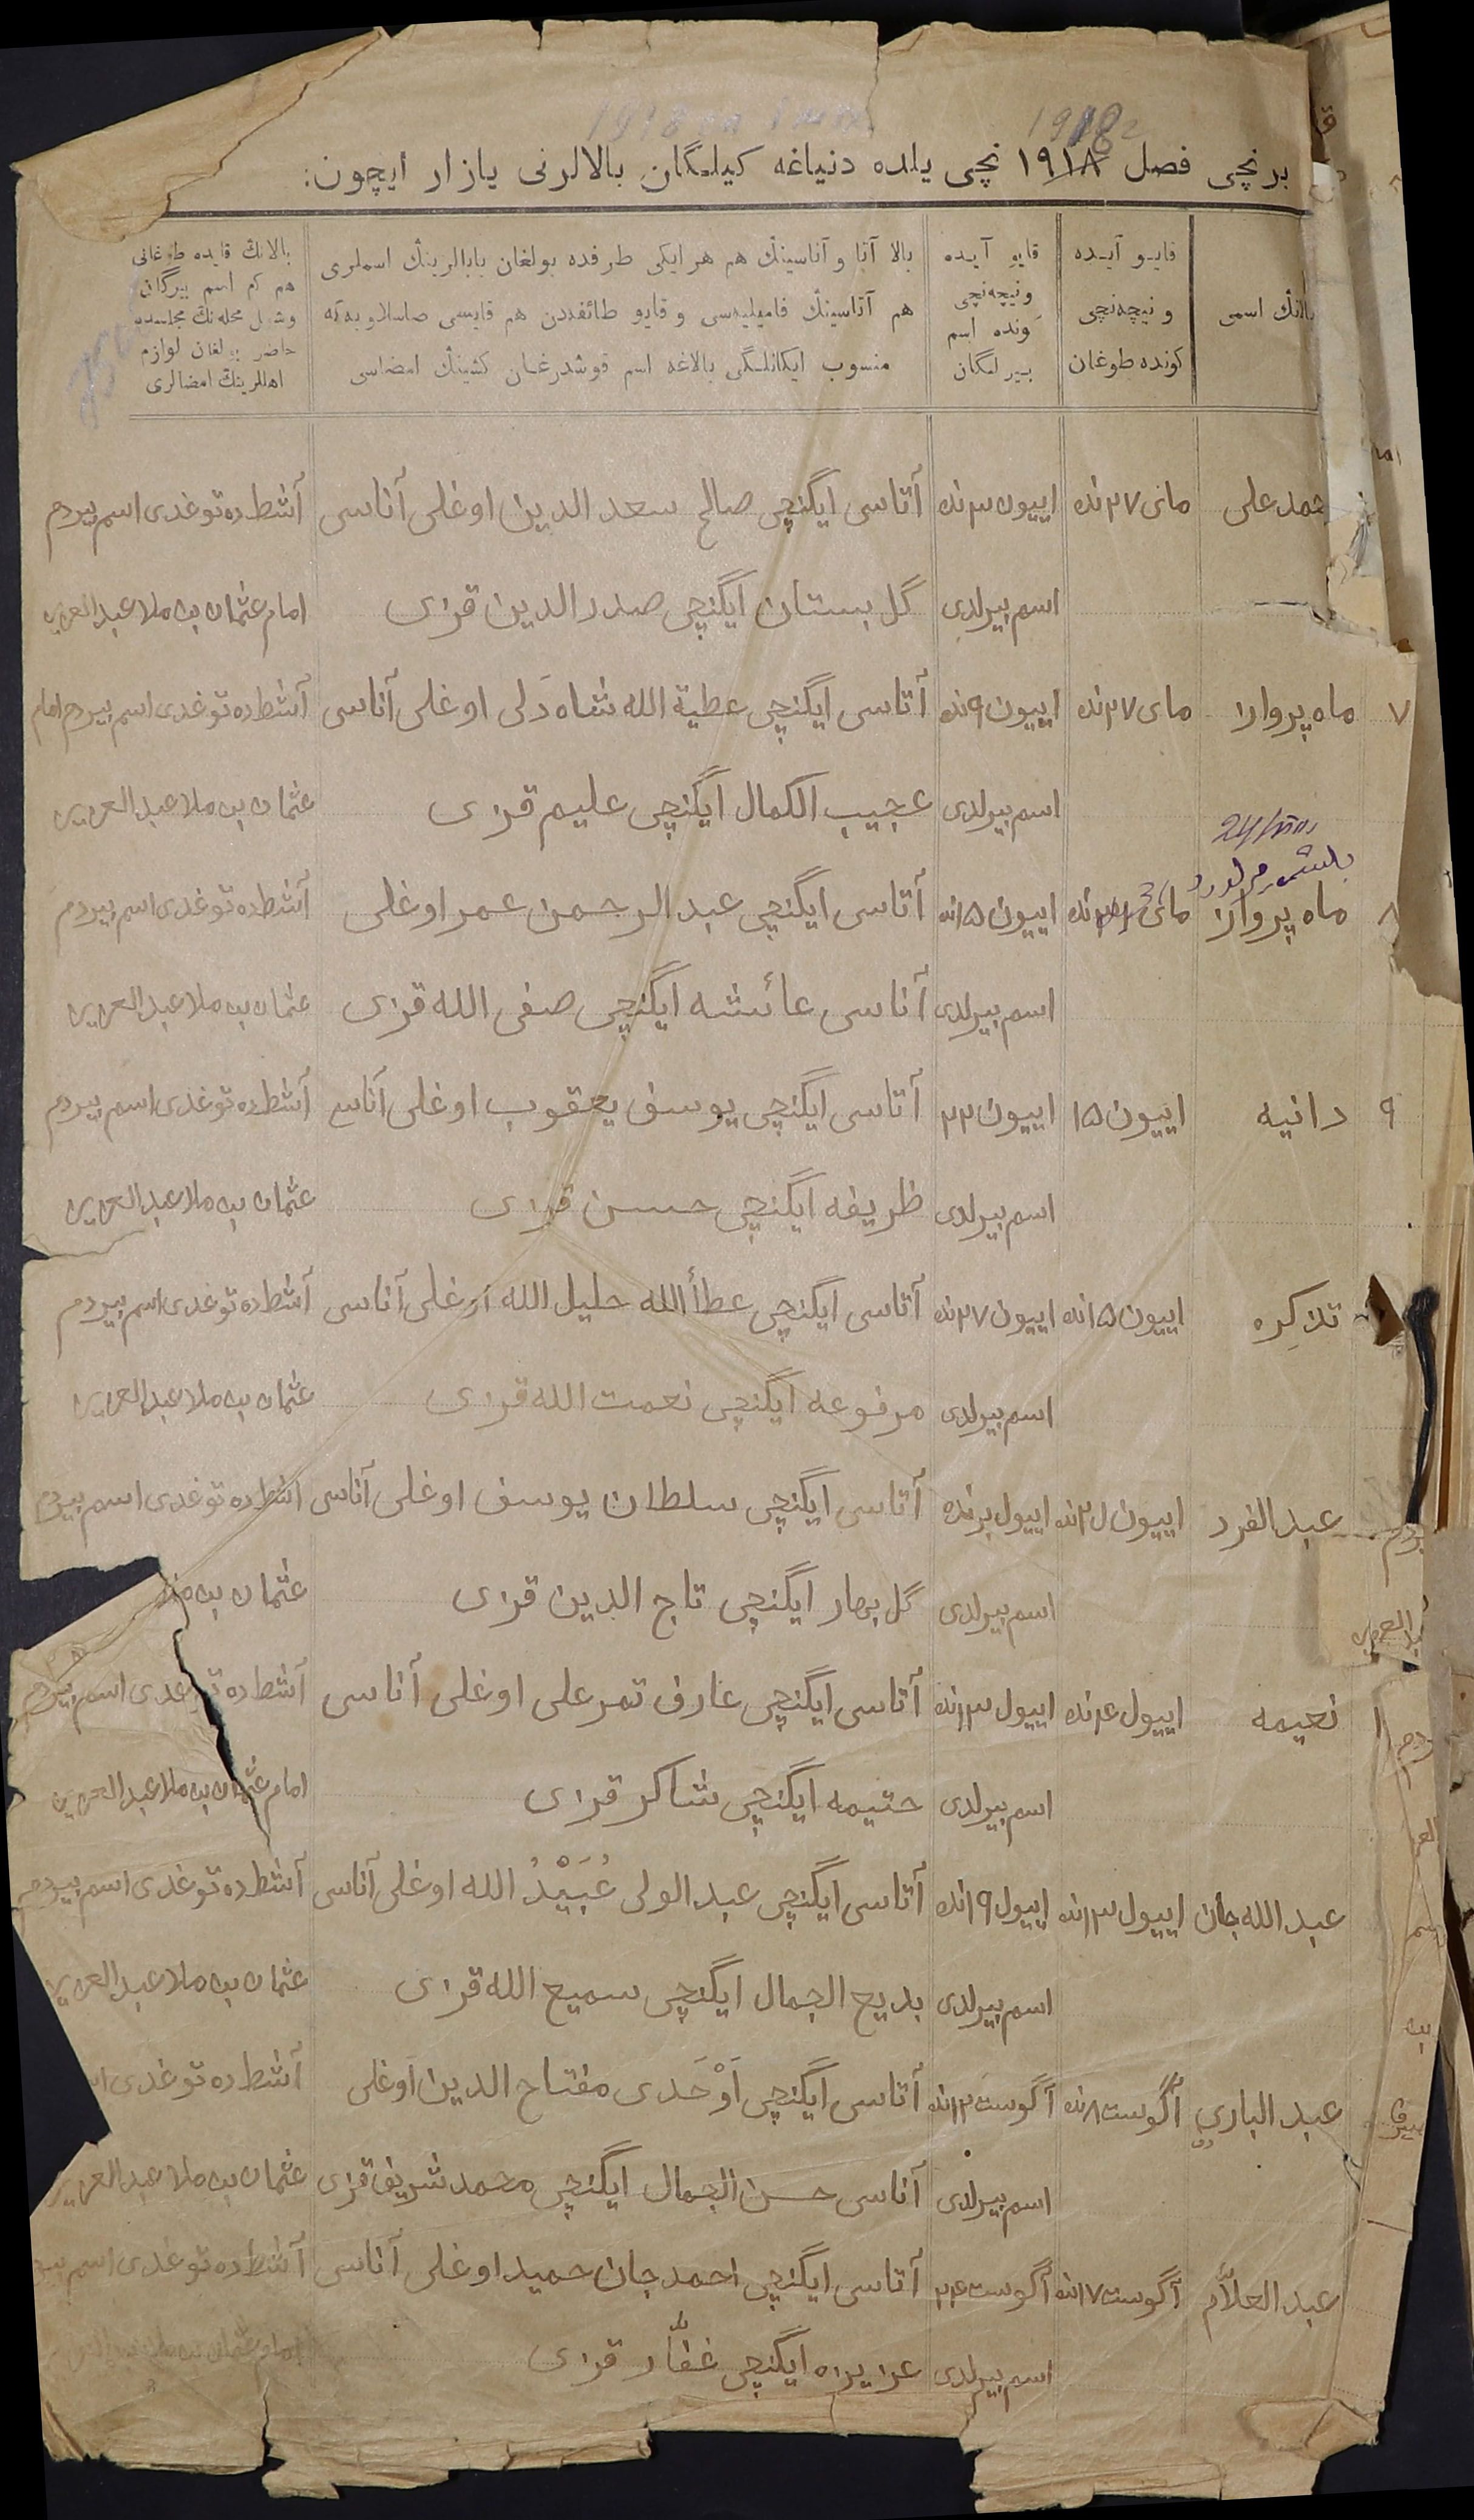 1918 г
برنچی فصل ١٩١٨ نچی یلده دنیاغه کیلگان بالالرنی یازار ایچون:
بالانڭ اسمی
قایو آیده و نیچه‌نچی کونده طوغان
قایو آیده و نیچه‌نچی کونده اسم بیرلگان
بالا آتا و آناسینڭ هم هر ایکی طرفده بولغان بابالرینڭ اسملری
هم آتاسینڭ فامیلیه‌سی و قایو طائفه‌دن هم قایسی صاصلاویه‌گه
منسوب ایکانلگی بالاغه اسم قوشدرغان کشینڭ امضاسی
بالانڭ قایده طوغانی
هم کم اسم بیرگان
وشول محله‌نڭ مجلسده
حاضر بولغان لوازم
اهللرینڭ امضالری
حمد علی مای ٢٧ نده اییون ٣ نده آتاسی ایگنچی صالح سعد الدین اوغلی آناسی آشطده توغدی اسم بیردم
اسم بیرلدی گل بستان ایگنچی صدر الدین قزی امام عثمان بن ملا عبد العزیز
٧ ماه پروار مای ٢٧ نده اییون ٩ نده آتاسی ایگنچی عطیة الله شاه دَلی اوغلی آناسی آشطده توغدی اسم بیردم امام
اسم بیرلدی عجیب الکمال ایگنچی علیم قزی عثمان بن ملا عبد العزیز
٨ ماه پروار مای نده اییون ١٥ نده آتاسی ایگنچی عبد الرحمن عمر اوغلی آشطده توغدی اسم بیردم
اسم بیرلدی آناسی عائشه ایگنچی صفی الله قزی عثمان بن ملا عبد العزیز
٩ دانیه اییون ١٥ اییون ٢٢ آتاسی ایگنچی یوسف یعقوب اوغلی آناسی آشطده توغدی اسم بیردم
اسم بیرلدی ظریفه ایگنچی حسن قزی عثمان بن ملا عبد العزیز
تذکِره اییون ١٥ نده اییون ٢٧ نده آتاسی ایگنچی عطأ الله خلیل الله اوغلی آناسی آشطده توغدی اسم بیردم
اسم بیرلدی مرفوعه ایگنچی نعمت الله قزی عثمان بن ملا عبد العزیز
عبد الفرد اییون نده اییول برنده آتاسی ایگنچی سلطان یوسف اوغلی آناسی آشطده توغدی اسم بیردم
اسم بیرلدی گل بهار ایگنچی تاج الدین قزی عثمان بن
نعیمه اییول ٤ نده اییول ١٣ نده آتاسی ایگنچی عارف تمر علی اوغلی آناسی آشطده توغدی اسم بیردم
اسم بیرلدی حتیمه ایگنچی شاکر قزی امام عثمان بن ملا عبد العزیز
عبد الله جان اییول ١٣ نده اییول ١٩ نده آتاسی ایگنچی عبد الولی عُبَیْدُ الله اوغلی آناسی آشطده توغدی اسم بیردم
اسم بیرلدی بدیع الجمال ایگنچی سمیع الله قزی عثمان بن ملا عبد العزیز
عبد الباري آگوست ٨ نده آگوست ١٢ نده آتاسی ایگنچی اَوْحَدی مفتاح الدین اوغلی آشطده توغدی
اسم بیرلدی آناسی حسن الجمال ایگنچی محمد شریف قزی عثمان بن ملا عبد العزیز
عبد العلاَّم آگوست ١٧ نده آگوست ٢٤ آتاسی ایگنچی احمد جان حمید اوغلی آناسی آشطده توغدی اسم
اسم بیرلدی عزیزه ایگنچی غفَّار قزی